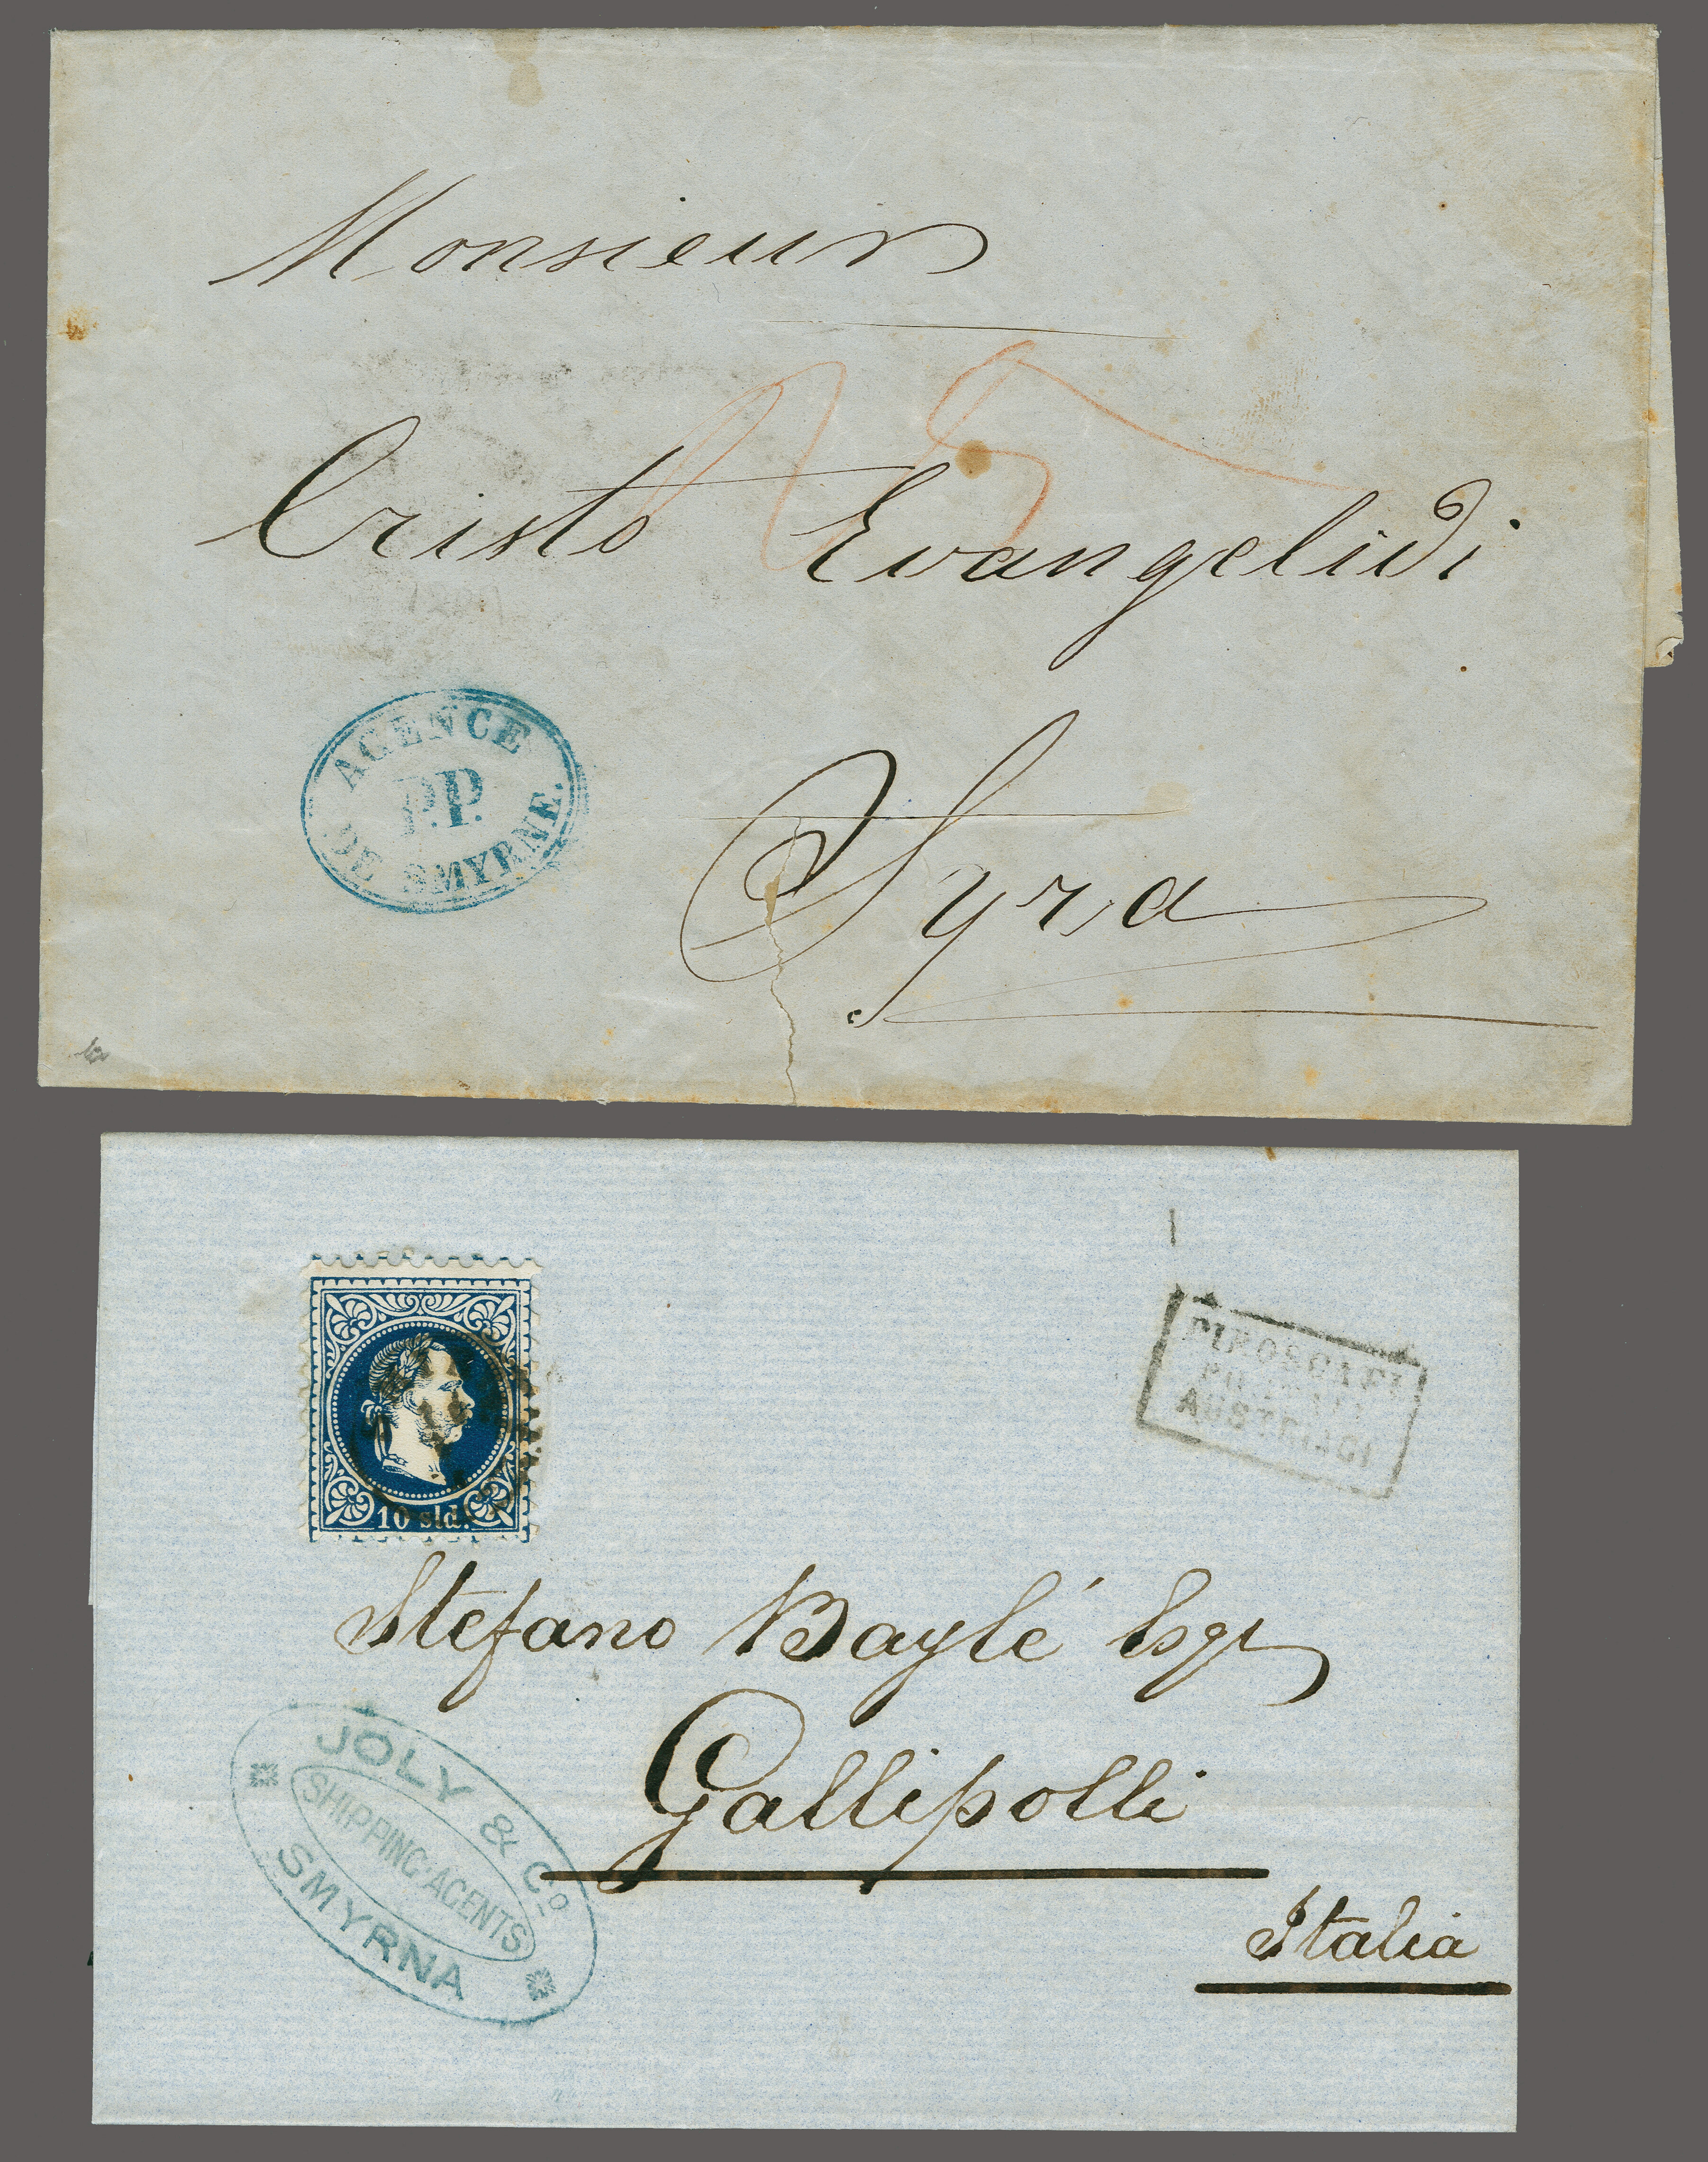 Monsieur
Cristo Evangelidi
AGENCE
P.P.
DE SMYRNE.
Syra
10 sld.
PIROSCAFI
POSTALI
AUSTRIACI
Stefano Baylé Esqr
Gallipolli
Italia
JOLY & Co
SHIPPING·AGENTS
SMYRNA